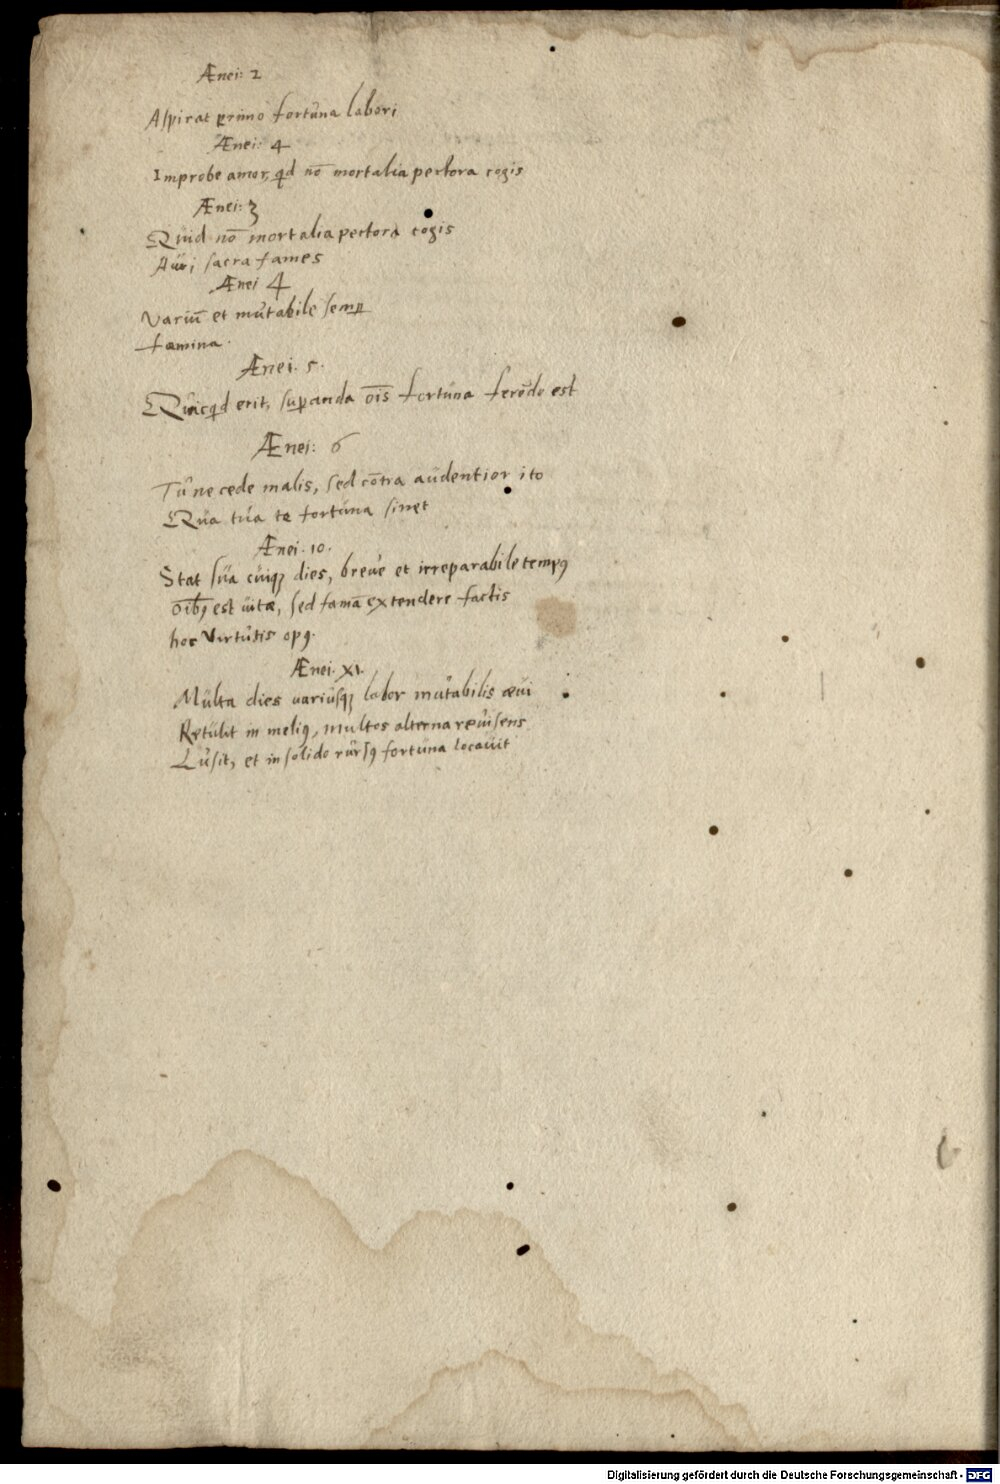 Ænei: 2
Aspirat primo fortuna labori
Ænei: 4
Improbe amor, qd nō mortalia pectora cogis
Ænei: 3
Quid nō mortalia pectora cogis
Auri sacra fames
Ænei 4
Variū et mutabile semp
fæmina.
Ænei. 5.
Quicqd erit, supanda oīs fortuna ferēdo est
Ænei: 6
Tu ne cede malis, sed cōtra audentior ito
Qua tua te fortuna sinet
Ænei. 10.
Stat sua cuiqꝫ dies, breve et irreparabile tempꝰ
oībꝰ est uitæ, sed famā extendere factis
hoc Virtutis opꝰ.
Ænei. XI.
Multa dies uariusqꝫ labor mutabilis æui
Retulit in meliꝰ, multos alterna reuisens
Lusit, et in solido rursꝰ fortuna locauit
Digitalisierung gefördert durch die Deutsche Forschungsgemeinschaft - DFG